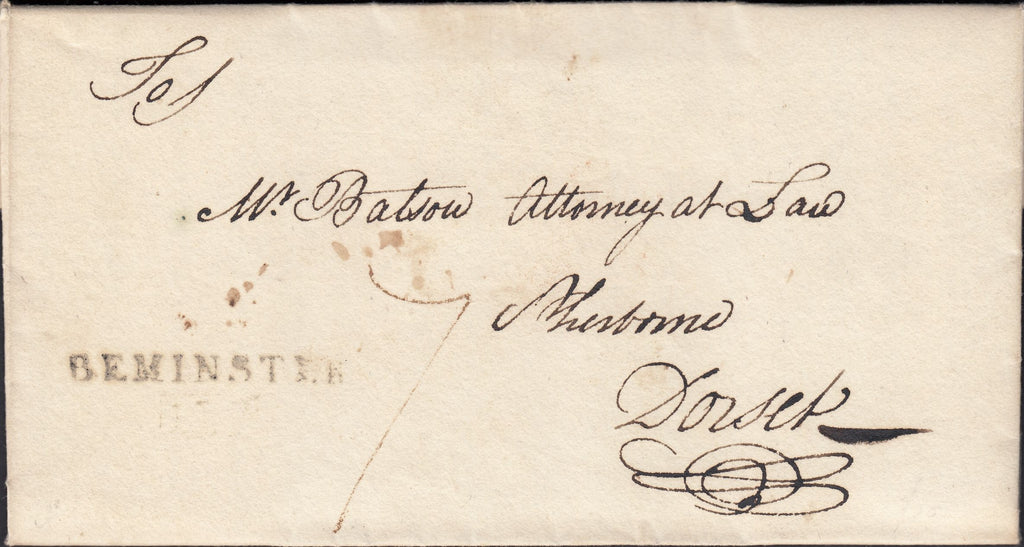 To/
Mr. Batson Attorney at Law
Sherborne
7
BEMINSTER
Dorset